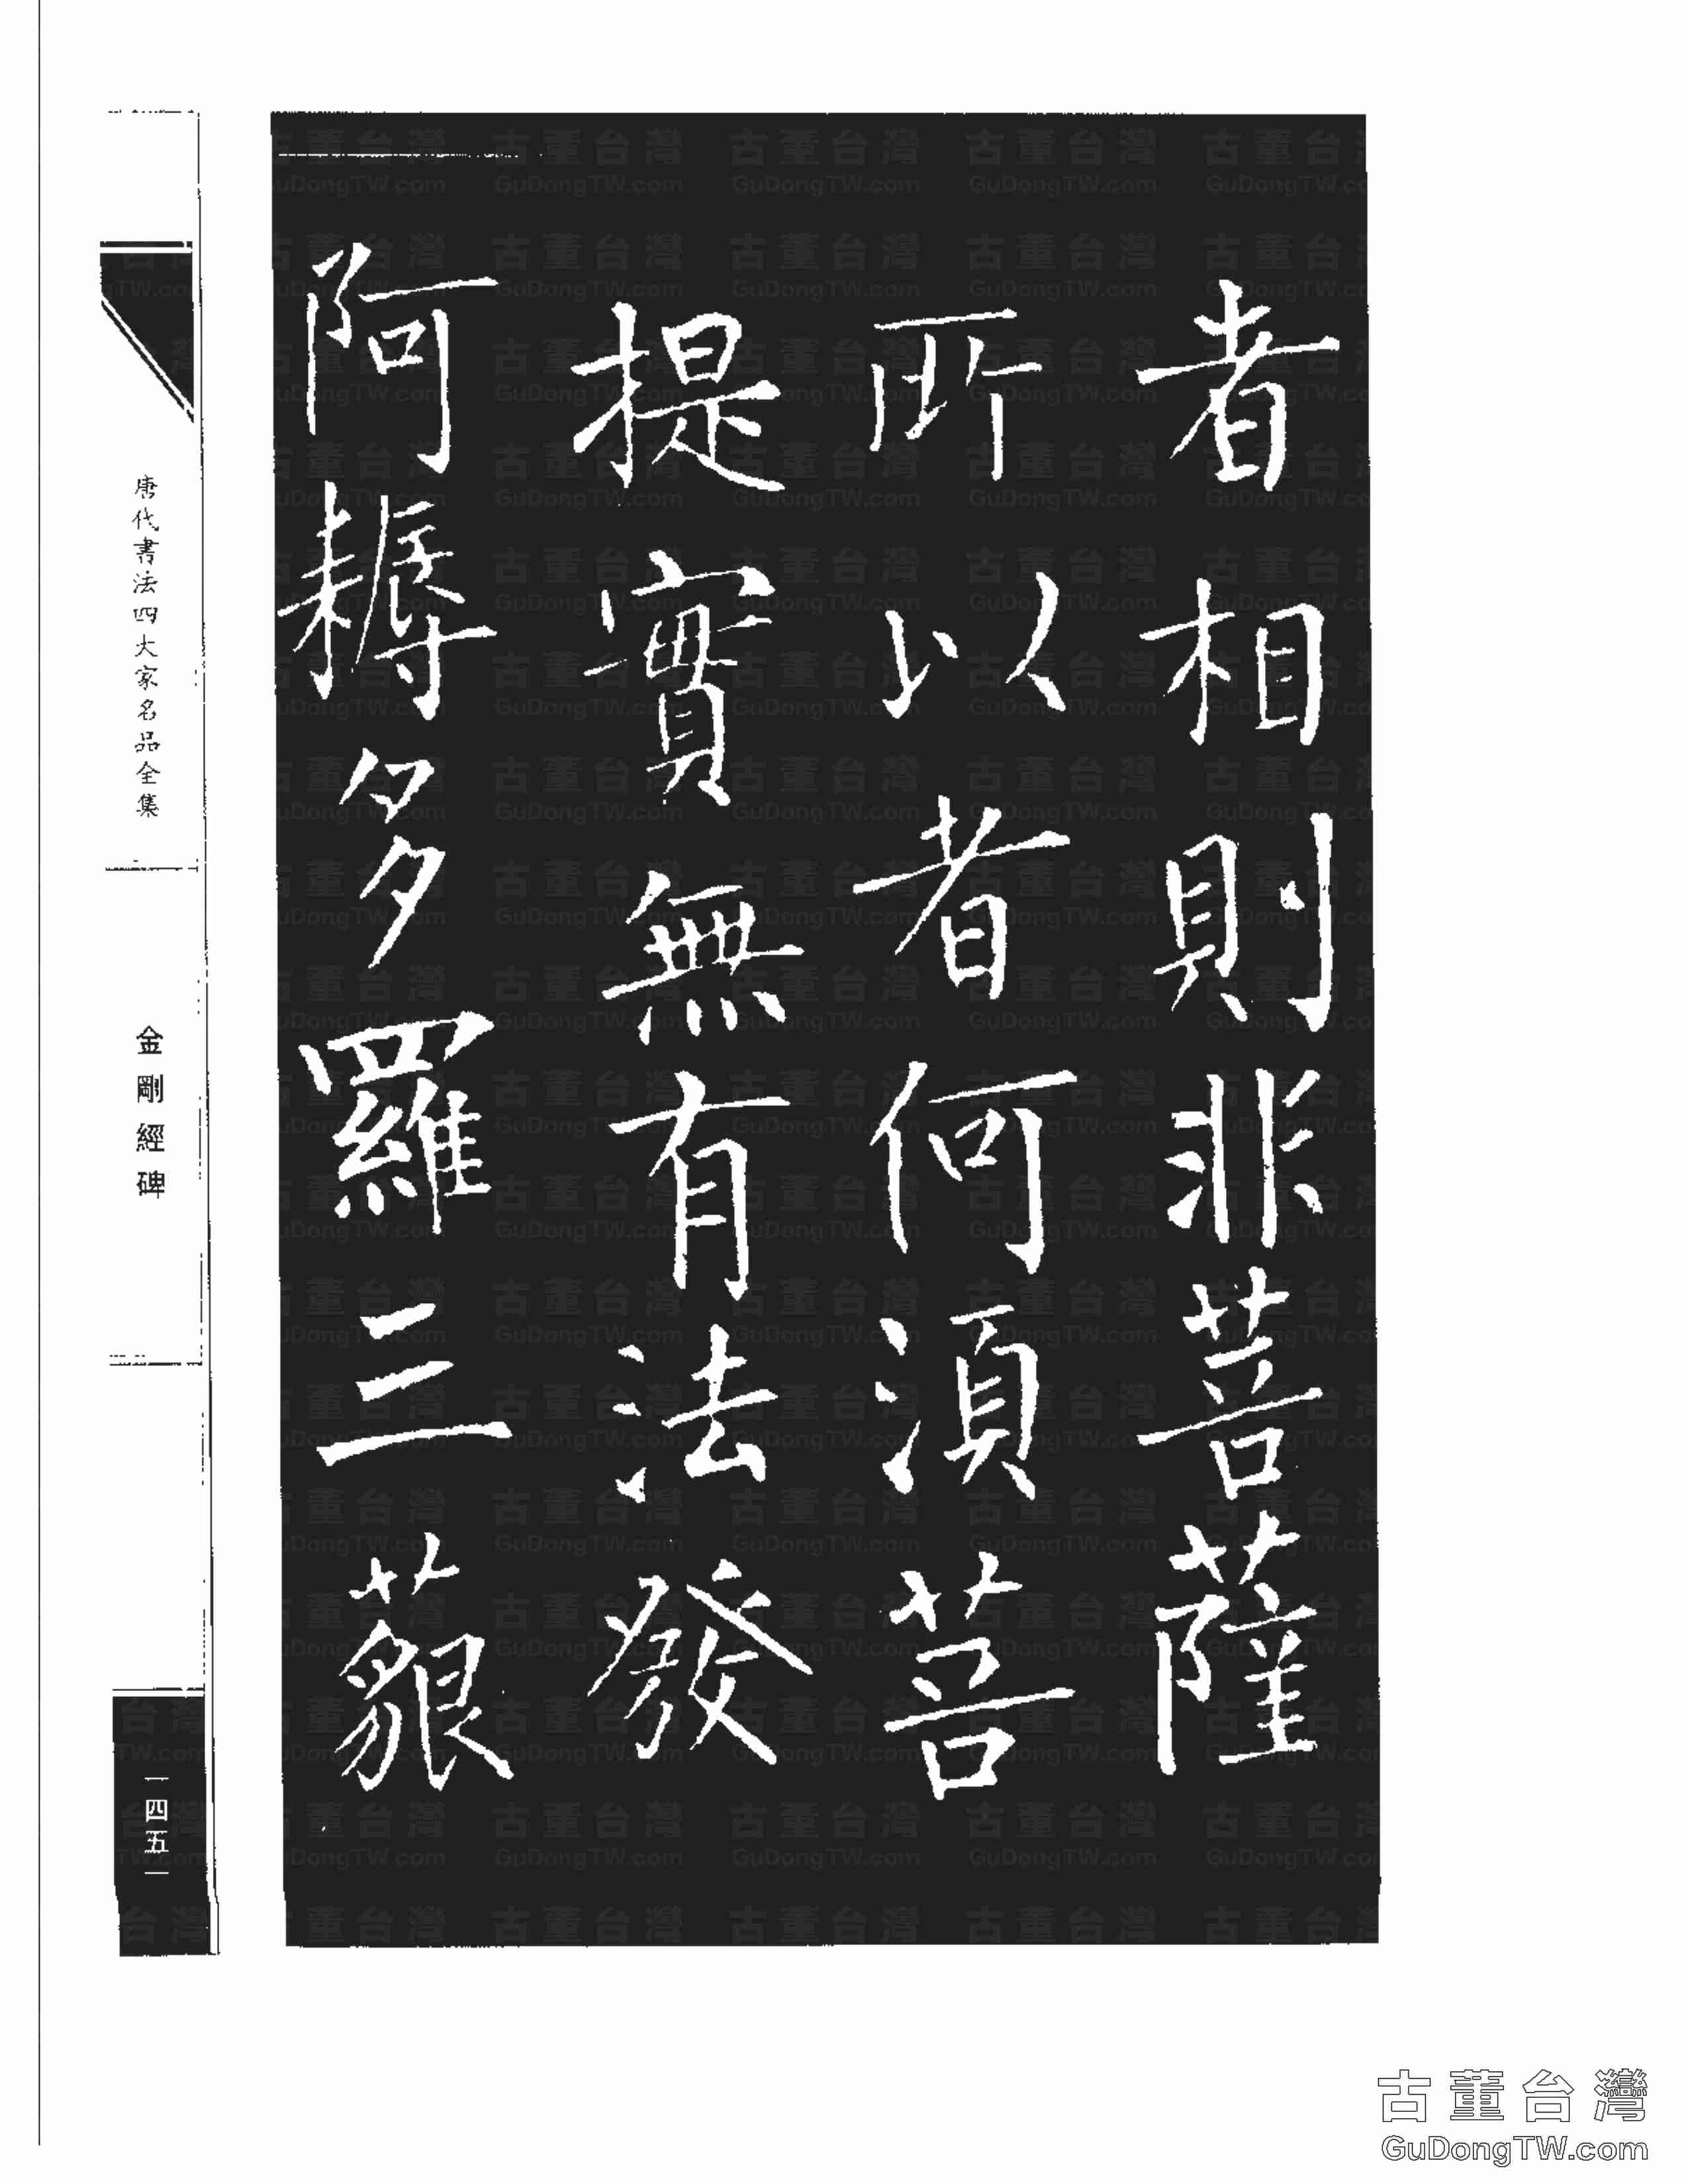 者相則非菩薩
所以者何須菩
提實無有法發
阿耨多羅三藐
唐代書法四大家名品全集
金剛經碑
一四五一
古董台灣
GuDongTW.com